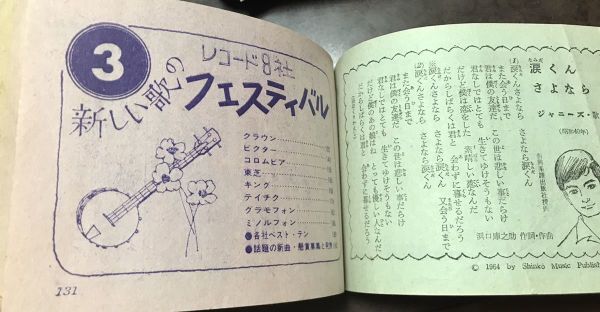 3
レコード8社
新しい歌の
フェスティバル
クラウン
ビクター
コロムビア
東芝
キング
テイチク
グラモフォン
ミノルフォン
●各社ベスト・テン
●話題の新曲・懸賞募集と発表
131
涙くん
さよなら
ジャニーズ・歌
(昭和40年)
浜口庫之助 作詞・作曲
(1) 涙くんさよなら さよなら涙くん
また会う日まで
君は僕の友達だ この世は悲しい事だらけ
君なしではとても 生きてゆけそうもない
だけど僕は恋をした 素晴しい恋なんだ
だからしばらくは君と 会わずに暮せるだろう
涙くんさよなら さよなら涙くん
又会う日まで
涙くんさよなら さよなら涙くん
また会う日まで
君は僕の友達だ この世は悲しい事だらけ
君なしではとても 生きてゆけそうもない
だけど僕のあの娘はね とっても優しい人なんだ
だからしばらくは君と 会わずに暮せるだろう
© 1964 by Shinko Music Publish